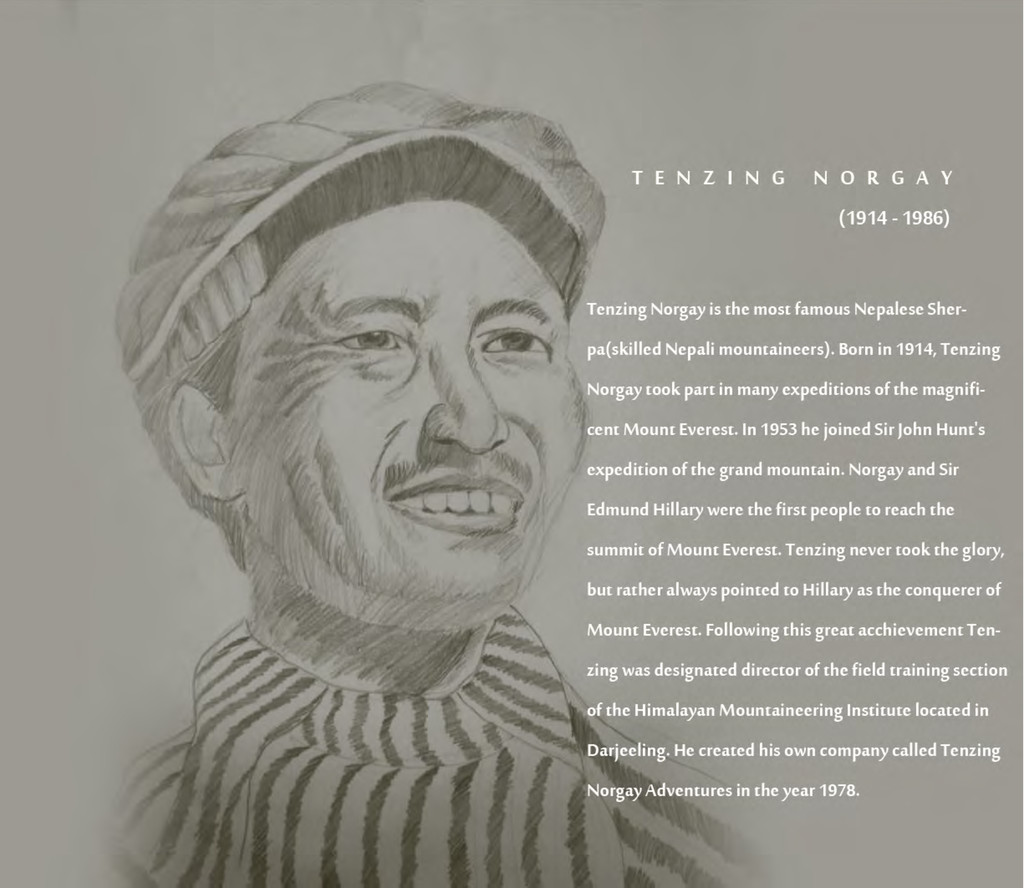 TENZING NORGAY
(1914 - 1986)
Tenzing Norgay is the most famous Nepalese Sher-
pa(skilled Nepali mountaineers). Born in 1914, Tenzing
Norgay took part in many expeditions of the magnifi-
cent Mount Everest. In 1953 he joined Sir John Hunt's
expedition of the grand mountain. Norgay and Sir
Edmund Hillary were the first people to reach the
summit of Mount Everest. Tenzing never took the glory,
but rather always pointed to Hillary as the conquerer of
Mount Everest. Following this great acchievement Ten-
zing was designated director of the field training section
of the Himalayan Mountaineering Institute located in
Darjeeling. He created his own company called Tenzing
Norgay Adventures in the year 1978.